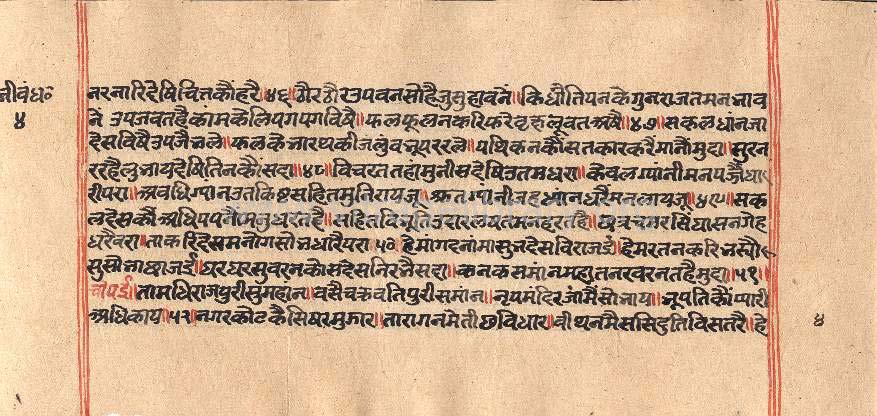 जीवंध॰
४
नरनारिदेषिचित्तकौंहरै॥४६॥ठौरठौरउपवनसोहैजुसुहावनें॥किधौंतियनकेगुनराजतमनभाव
नें उपजवतहैकांमकेलिपगपगविषै॥फलफूलनकरिफरेवृछलूवतअषै॥४७॥सकलधांनजा
देसविषैउपजैभले॥फलकेभारथकीजलुंबभूपररले॥पथिकनकौंसतकारकरैंमानौंमुदा॥सुरन
ररहैलुभायदेषितिनकौंसदा॥४८॥विचरततहांमुनीसदेषिउतमधरा॥केवलग्यांनीमनपर्जेधा
रीपरा॥अवधिग्यांनजुतविसहितमुनिरायजू॥श्रुतग्यांनीजहध्यांनधरैंमनलायजू॥४९॥सक
लदेसकौअधिपपनौंमनुधरतहै॥महितविभूतिउदारलषतमनहरतहै॥छत्रचमरसिंघासनगेह
धरैवरा॥ताकरिदेसमनोगसोभधारैपरा॥५०॥हेमांगदनांमासुभदेसविराजई॥हेमरतनकरिभस्यौ
सुसोभाछाजई॥घरघरसुवरनकोसदेसनिरभैसदा॥कनकसमांनमहातनरवरनतहैमुदा॥५१॥
चौपई॥तामधिराजपुरीसुमहान॥वसैचक्रवतिपुरीसमांन॥नृपमंदिरजांमैंसोभाय॥भूपतिकौंप्यारी
अधिकाय॥५२॥नगरकोटकैसिषरमुझार॥तारागनमेतीछविधार॥वीथनमैससिदुतिविसतरै॥हे
४